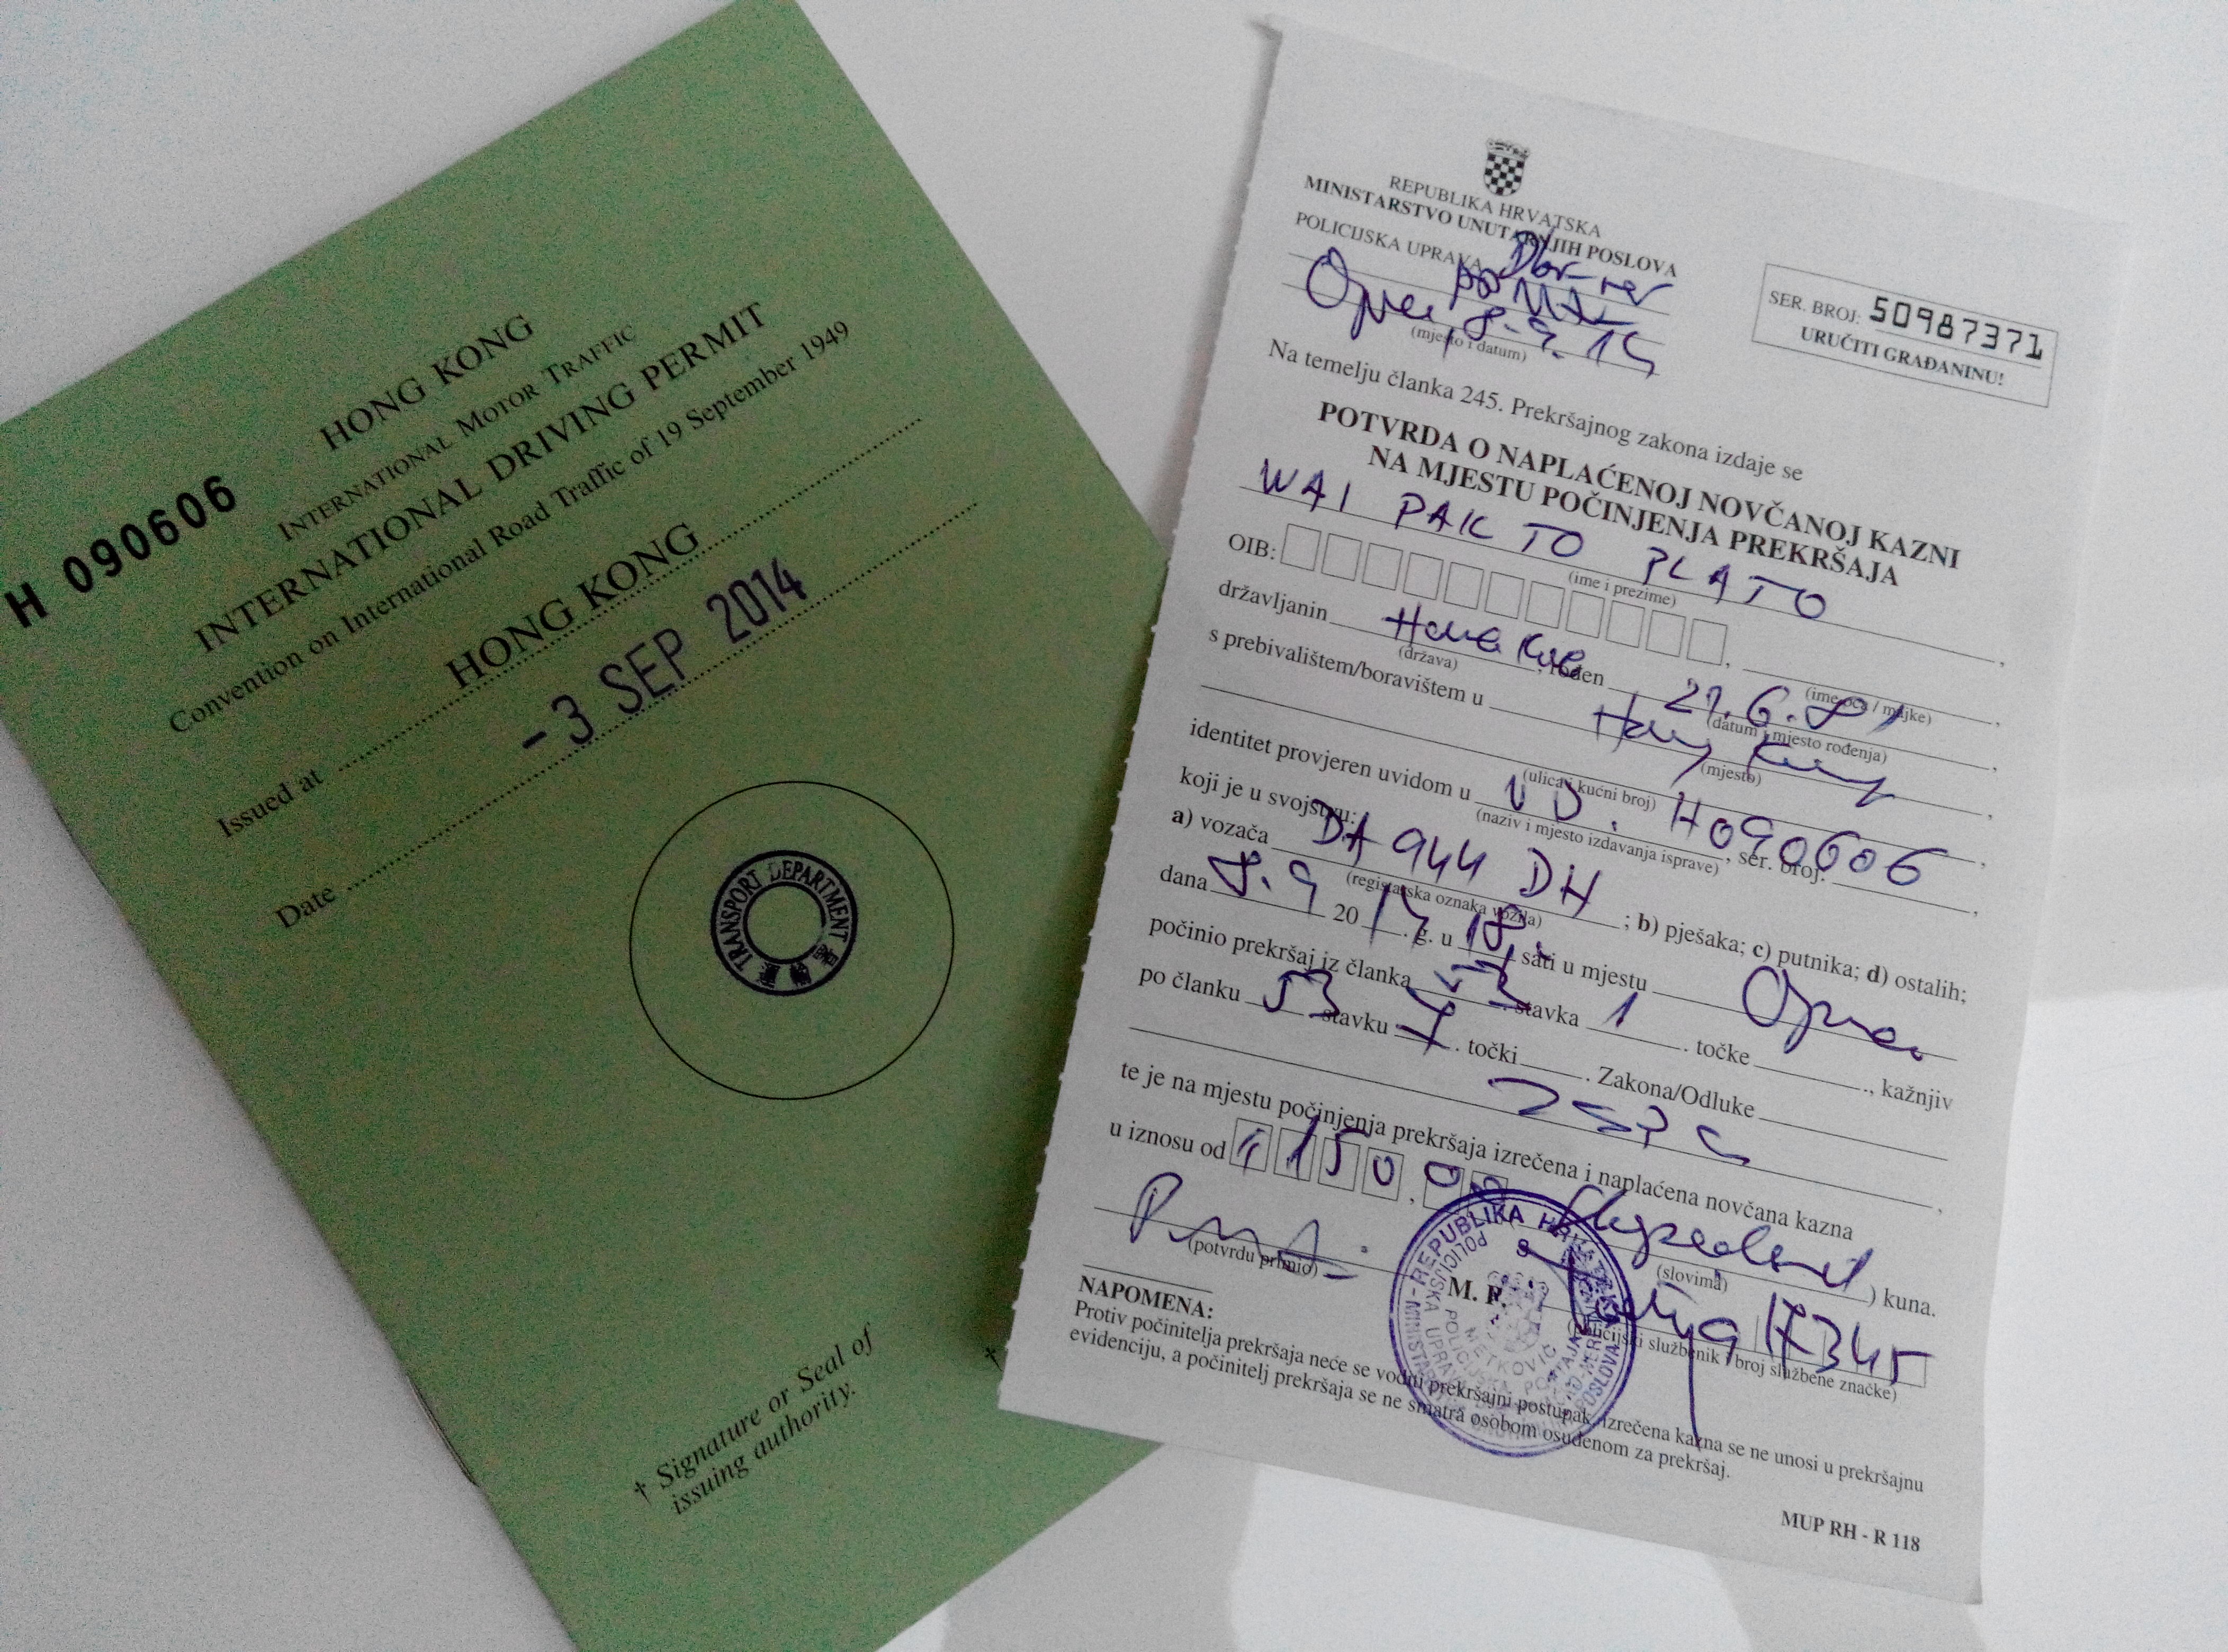 H 090606
HONG KONG
INTERNATIONAL MOTOR TRAFFIC
INTERNATIONAL DRIVING PERMIT
Convention on International Road Traffic of 19 September 1949
Issued at HONG KONG
Date -3 SEP 2014
TRANSPORT DEPARTMENT
† Signature or Seal of
issuing authority.
†
REPUBLIKA HRVATSKA
MINISTARSTVO UNUTARNJIH POSLOVA
POLICIJSKA UPRAVA
8.9.14
(mjesto i datum)
SER. BROJ: 50987371
URUČITI GRAĐANINU!
Na temelju članka 245. Prekršajnog zakona izdaje se
POTVRDA O NAPLAĆENOJ NOVČANOJ KAZNI
NA MJESTU POČINJENJA PREKRŠAJA
WAI PAK TO PLATO
(ime i prezime)
OIB: ,
(ime oca / majke)
državljanin Hong Kong, rođen 21.6.81,
(država) (datum i mjesto rođenja)
s prebivalištem/boravištem u Hong Kong,
(mjesto)
(ulica i kućni broj)
identitet provjeren uvidom u V.D., ser. broj: H090606,
(naziv i mjesto izdavanja isprave)
koji je u svojstvu:
a) vozača DA 944 DH; b) pješaka; c) putnika; d) ostalih;
(registarska oznaka vozila)
dana 8.9 2014. g. u 18, sati u mjestu
počinio prekršaj iz članka 53. stavka 1. točke ., kažnjiv
po članku 53. stavku . točki . Zakona/Odluke
te je na mjestu počinjenja prekršaja izrečena i naplaćena novčana kazna
u iznosu od 150,00 kuna.
(slovima)
(potvrdu primio)
M. P.
17345
(policijski službenik i broj službene značke)
REPUBLIKA HRVATSKA
MINISTARSTVO UNUTARNJIH POSLOVA
POLICIJSKA UPRAVA
POLICIJSKA POSTAJA
METKOVIĆ
NAPOMENA:
Protiv počinitelja prekršaja neće se voditi prekršajni postupak, izrečena kazna se ne unosi u prekršajnu
evidenciju, a počinitelj prekršaja se ne smatra osobom osuđenom za prekršaj.
MUP RH - R 118